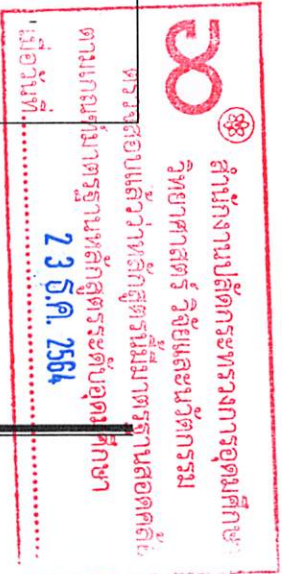 สำนักงานปลัดกระทรวงการอุดมศึกษา
วิทยาศาสตร์ วิจัยและนวัตกรรม
ตรวจสอบแล้วว่าหลักสูตรนี้มีมาตรฐานสอดคล้อง
ตามเกณฑ์มาตรฐานหลักสูตรระดับอุดมศึกษา
เมื่อวันที่ 23 ธ.ค. 2564